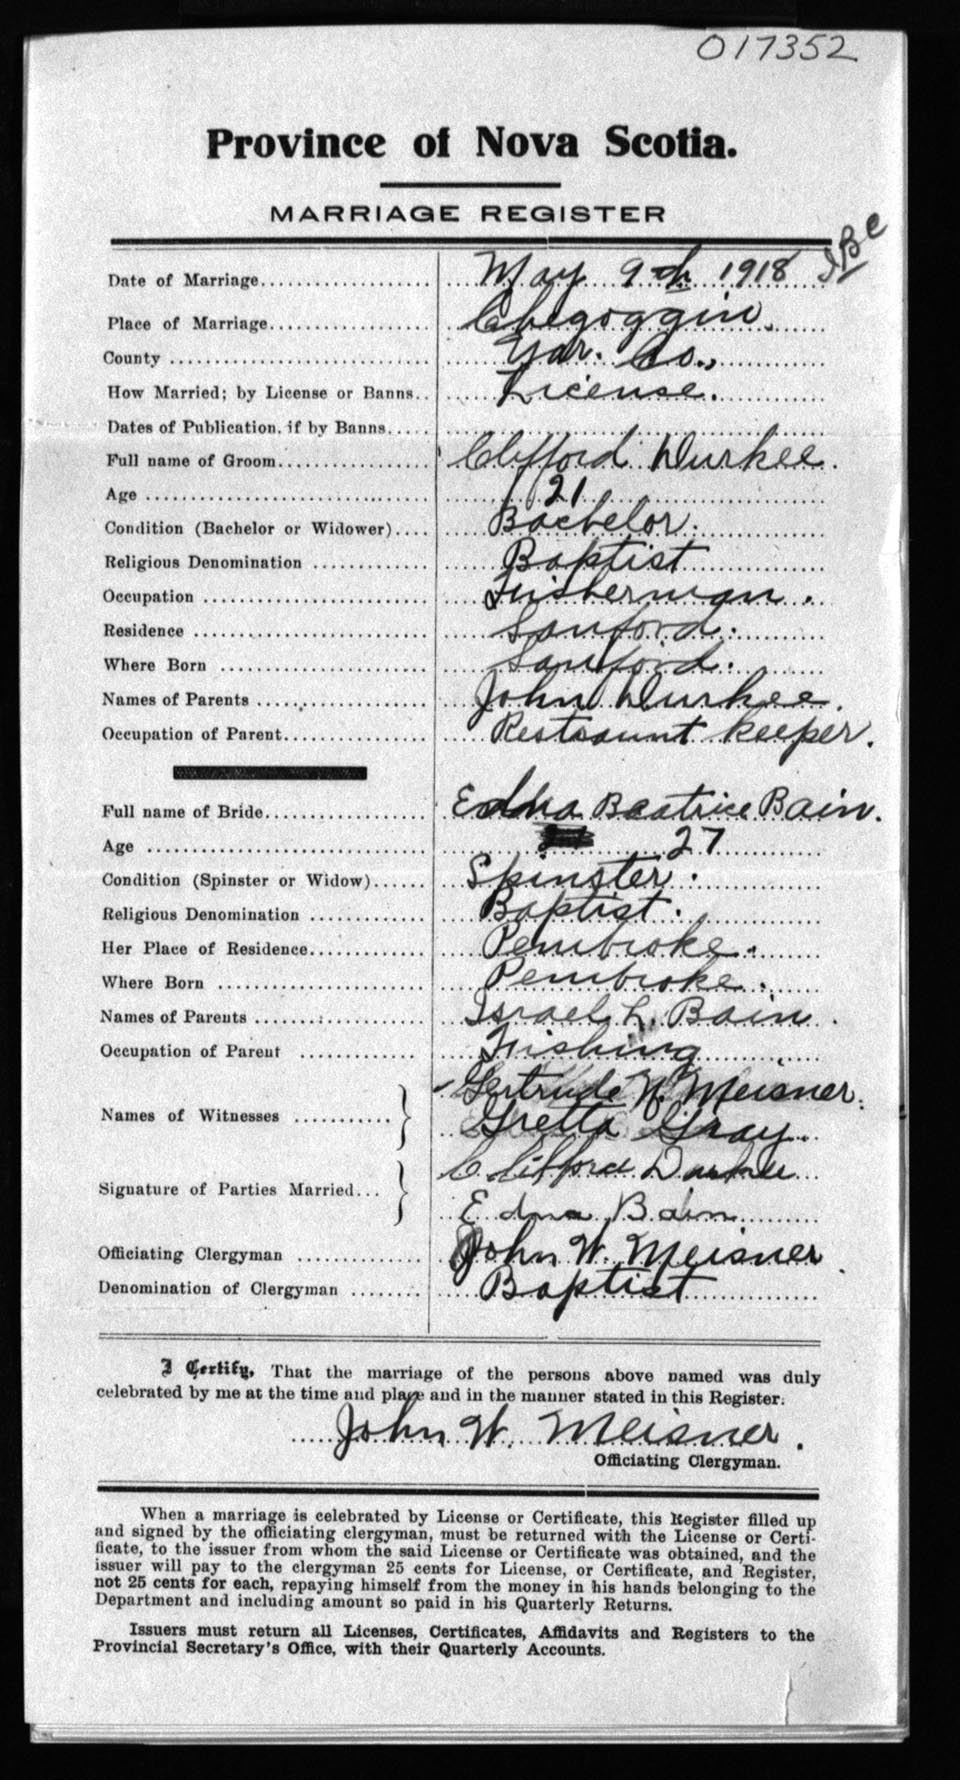 017352
Province of Nova Scotia.
MARRIAGE REGISTER
Date of Marriage.................... May 9th 1918
Place of Marriage................... Chegoggin.
County .............................. Yar. Co.,
How Married; by License or Banns.. License.
Dates of Publication, if by Banns.....
Full name of Groom.................. Clifford Durkee.
Age ................................. 21
Condition (Bachelor or Widower).... Bachelor.
Religious Denomination ............. Baptist
Occupation .......................... Fisherman.
Residence ........................... Sanford.
Where Born ......................... Sanford.
Names of Parents .................... John Durkee.
Occupation of Parent................ Restaurant keeper.
Full name of Bride................... Edna Beatrice Bain.
Age ................................. 27
Condition (Spinster or Widow)...... Spinster.
Religious Denomination ............. Baptist.
Her Place of Residence............. Pembroke.
Where Born ......................... Pembroke.
Names of Parents .................... Israel L. Bain.
Occupation of Parent ............... Fishing
Names of Witnesses ............ } Gertrude W. Meisner.
Gretta Gray.
Signature of Parties Married... } Clifford Durkee
Edna Bain
Officiating Clergyman .............. John W. Meisner
Denomination of Clergyman ........ Baptist
I Certify, That the marriage of the persons above named was duly
celebrated by me at the time and place and in the manner stated in this Register.
John W. Meisner.
Officiating Clergyman.
When a marriage is celebrated by License or Certificate, this Register filled up
and signed by the officiating clergyman, must be returned with the License or Certi-
ficate, to the issuer from whom the said License or Certificate was obtained, and the
issuer will pay to the clergyman 25 cents for License, or Certificate, and Register,
not 25 cents for each, repaying himself from the money in his hands belonging to the
Department and including amount so paid in his Quarterly Returns.
Issuers must return all Licenses, Certificates, Affidavits and Registers to the
Provincial Secretary's Office, with their Quarterly Accounts.